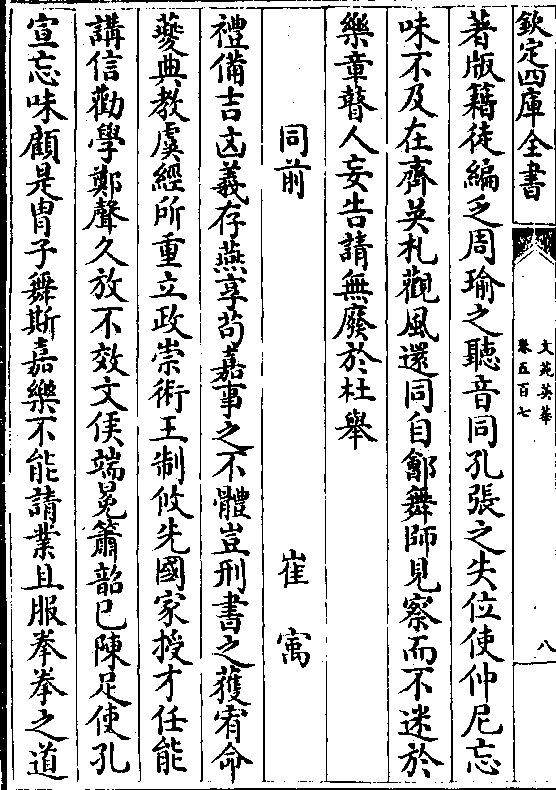 欽定四庫全書
文苑英華
卷五百七
八
著版籍徒編乏周瑜之聽音同孔張之失位使仲尼忘
味不及在齊英札觀風還同自鄶舞師見察而不迷於
樂章瞽人妄告請無廢於杜舉
同前
崔寓
禮備吉凶義存燕享茍嘉事之不體豈刑書之獲宥命
夔典教虞經所重立政崇術王制攸先國家授才任能
講信勸學鄭聲久放不效文侯端冕簫韶已陳足使孔
宣忘味顧是胄子舞斯嘉樂不能請業且服拳拳之道